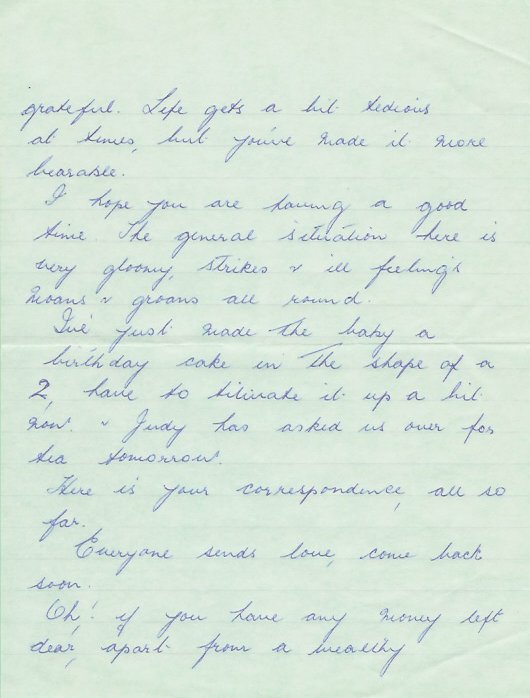 grateful. Life gets a bit tedious
at times, but you've made it more
bearable.
I hope you are having a good
time. The general situation here is
very gloomy, strikes & ill feelings
moans & groans all round.
I've just made the baby a
birthday cake in the shape of a
2, have to titivate it up a bit
now. & Judy has asked us over for
tea tomorrow.
Here is your correspondence, all so
far.
Everyone sends love, come back
soon.
Oh! if you have any money left
dear, apart from a wealthy